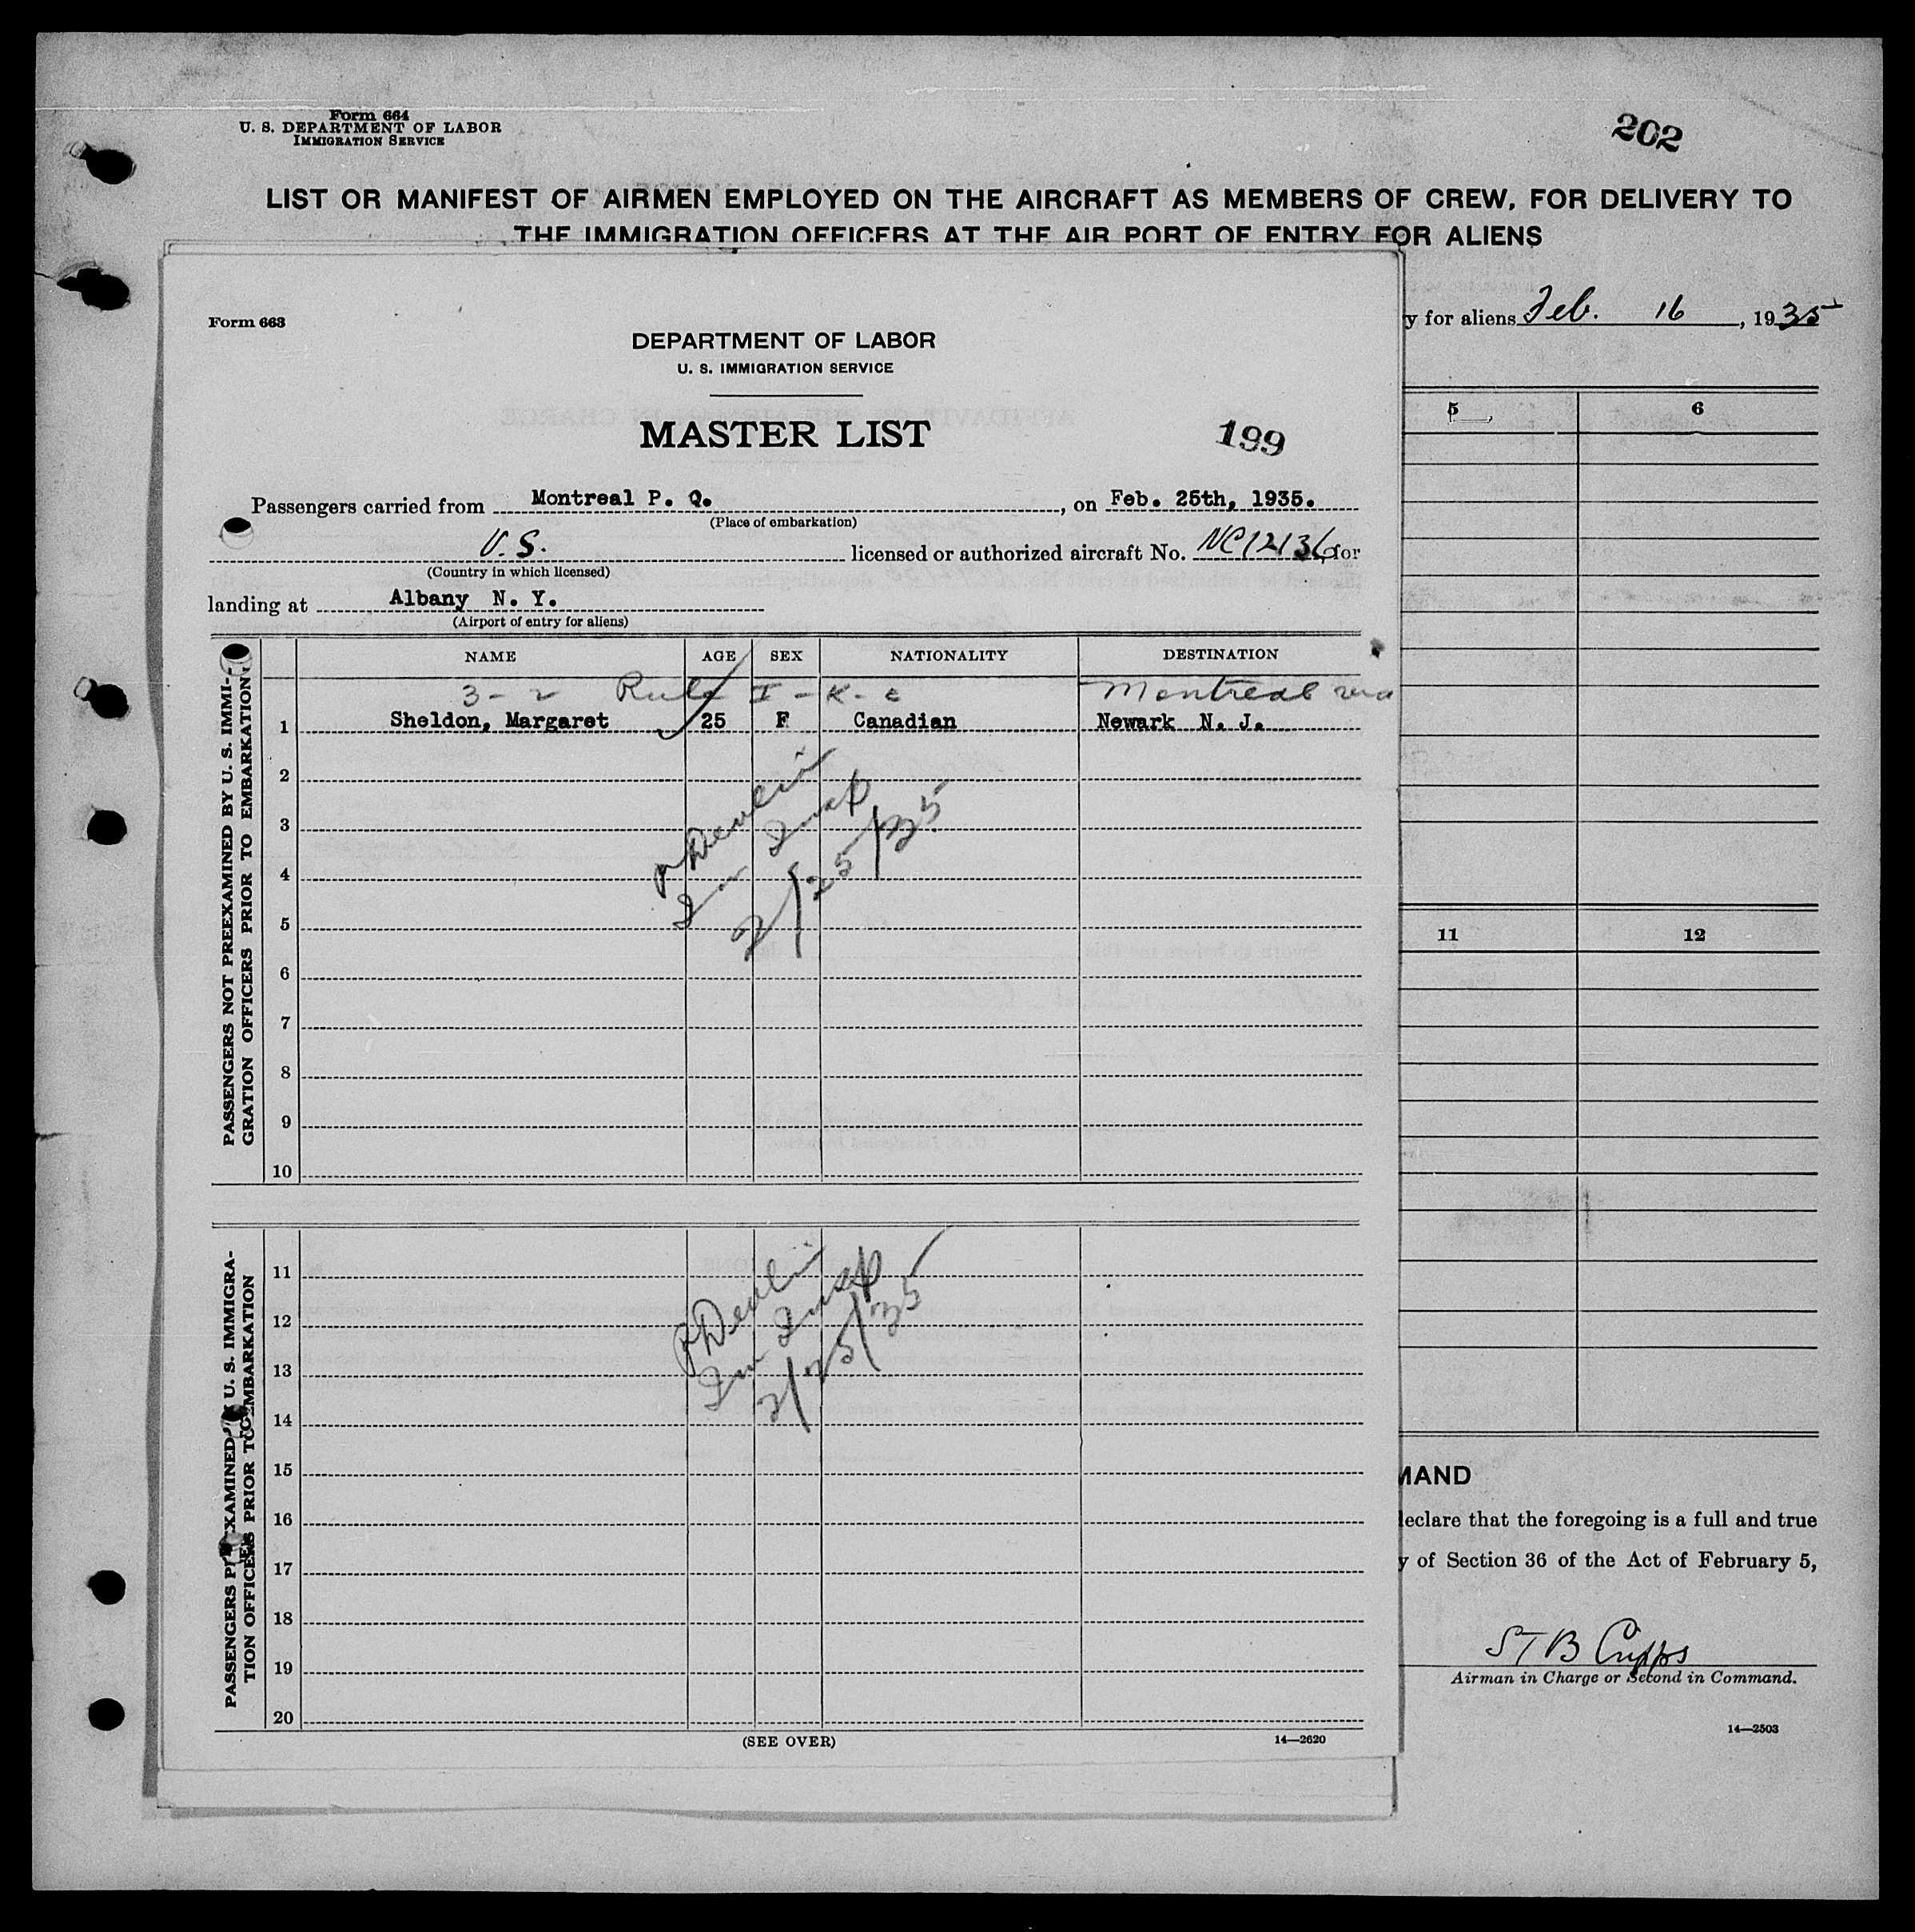 Form 664
U. S. DEPARTMENT OF LABOR
IMMIGRATION SERVICE
202
LIST OR MANIFEST OF AIRMEN EMPLOYED ON THE AIRCRAFT AS MEMBERS OF CREW, FOR DELIVERY TO
THE IMMIGRATION OFFICERS AT THE AIR PORT OF ENTRY FOR ALIENS
y for aliens Feb. 16, 1935
5 6
11 12
MAND
declare that the foregoing is a full and true
y of Section 36 of the Act of February 5,
STB Cripps
Airman in Charge or Second in Command.
14—2503
Form 663
DEPARTMENT OF LABOR
U. S. IMMIGRATION SERVICE
MASTER LIST
199
Passengers carried from Montreal P. Q., on Feb. 25th, 1935.
(Place of embarkation)
U.S. licensed or authorized aircraft No. NC12136, for
(Country in which licensed)
landing at Albany N. Y.
(Airport of entry for aliens)
PASSENGERS NOT PREEXAMINED BY U. S. IMMI-
GRATION OFFICERS PRIOR TO EMBARKATION
NAME AGE SEX NATIONALITY DESTINATION
3-2 Rule I-K-c Montreal via
1 Sheldon, Margaret 25 F Canadian Newark N. J.
2
3
4
5
6
7
8
9
10
Devlin
Im Insp
2/25/35
PASSENGERS PREEXAMINED U. S. IMMIGRA-
TION OFFICERS PRIOR TO EMBARKATION
11
12
13
14
15
16
17
18
19
20
Devlin
Im Insp
2/25/35
(SEE OVER)
14—2620